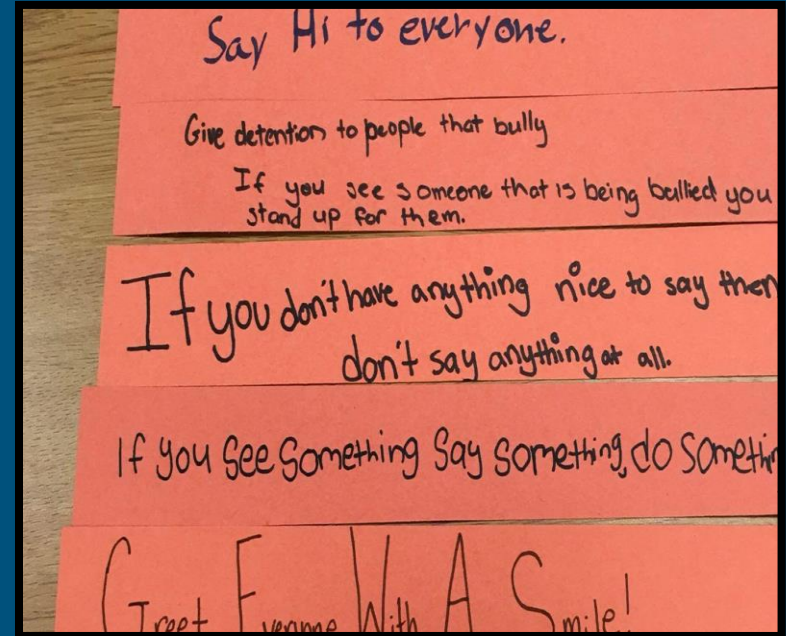 Say Hi to everyone.
Give detention to people that bully
If you see someone that is being bullied you
stand up for them.
If you don't have anything nice to say then
don't say anything at all.
If you See Something Say Something, do Somethin
Greet Everyone With A Smile!